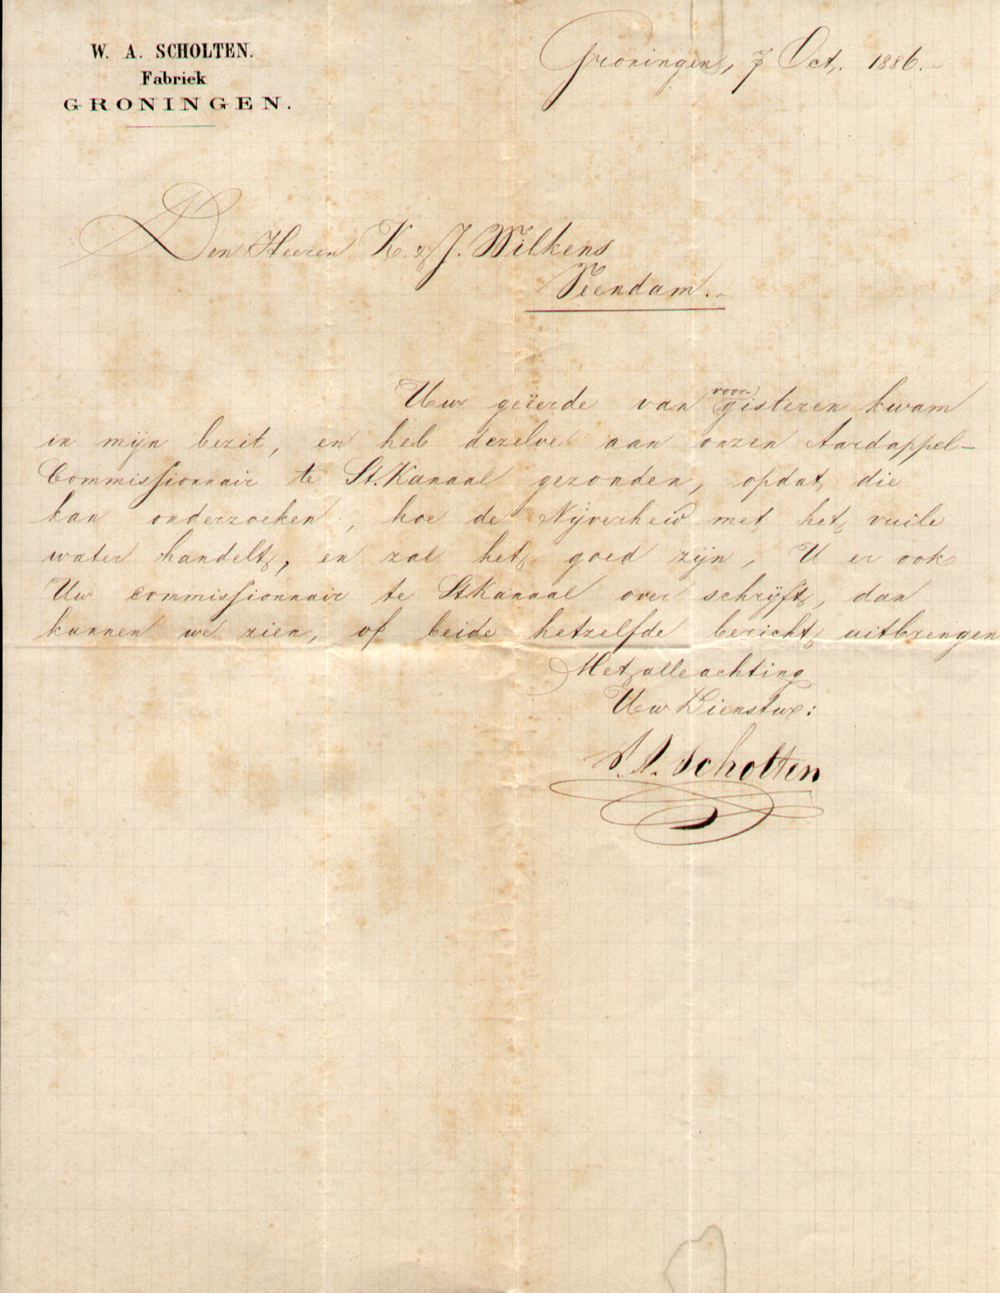 W. A. SCHOLTEN.
Fabriek
GRONINGEN.
Groningen, 7 Oct. 1886.
Den Heeren K. & J. Wilkens
Veendam.
Uwe geëerde van voor gisteren kwam
in mijn bezit, en heb dezelve aan onzen Aardappel-
Commissionnair te St. Kanaal gezonden, opdat die
kan onderzoeken, hoe de Nijverheid met het vuile
water handelt, en zal het goed zijn, U er ook
Uw commissionnair te St Kanaal over schrijft, dan
kunnen we zien, of beide hetzelfde bericht uitbrengen
Met alle achting
Uw Dienstw:
Scholten